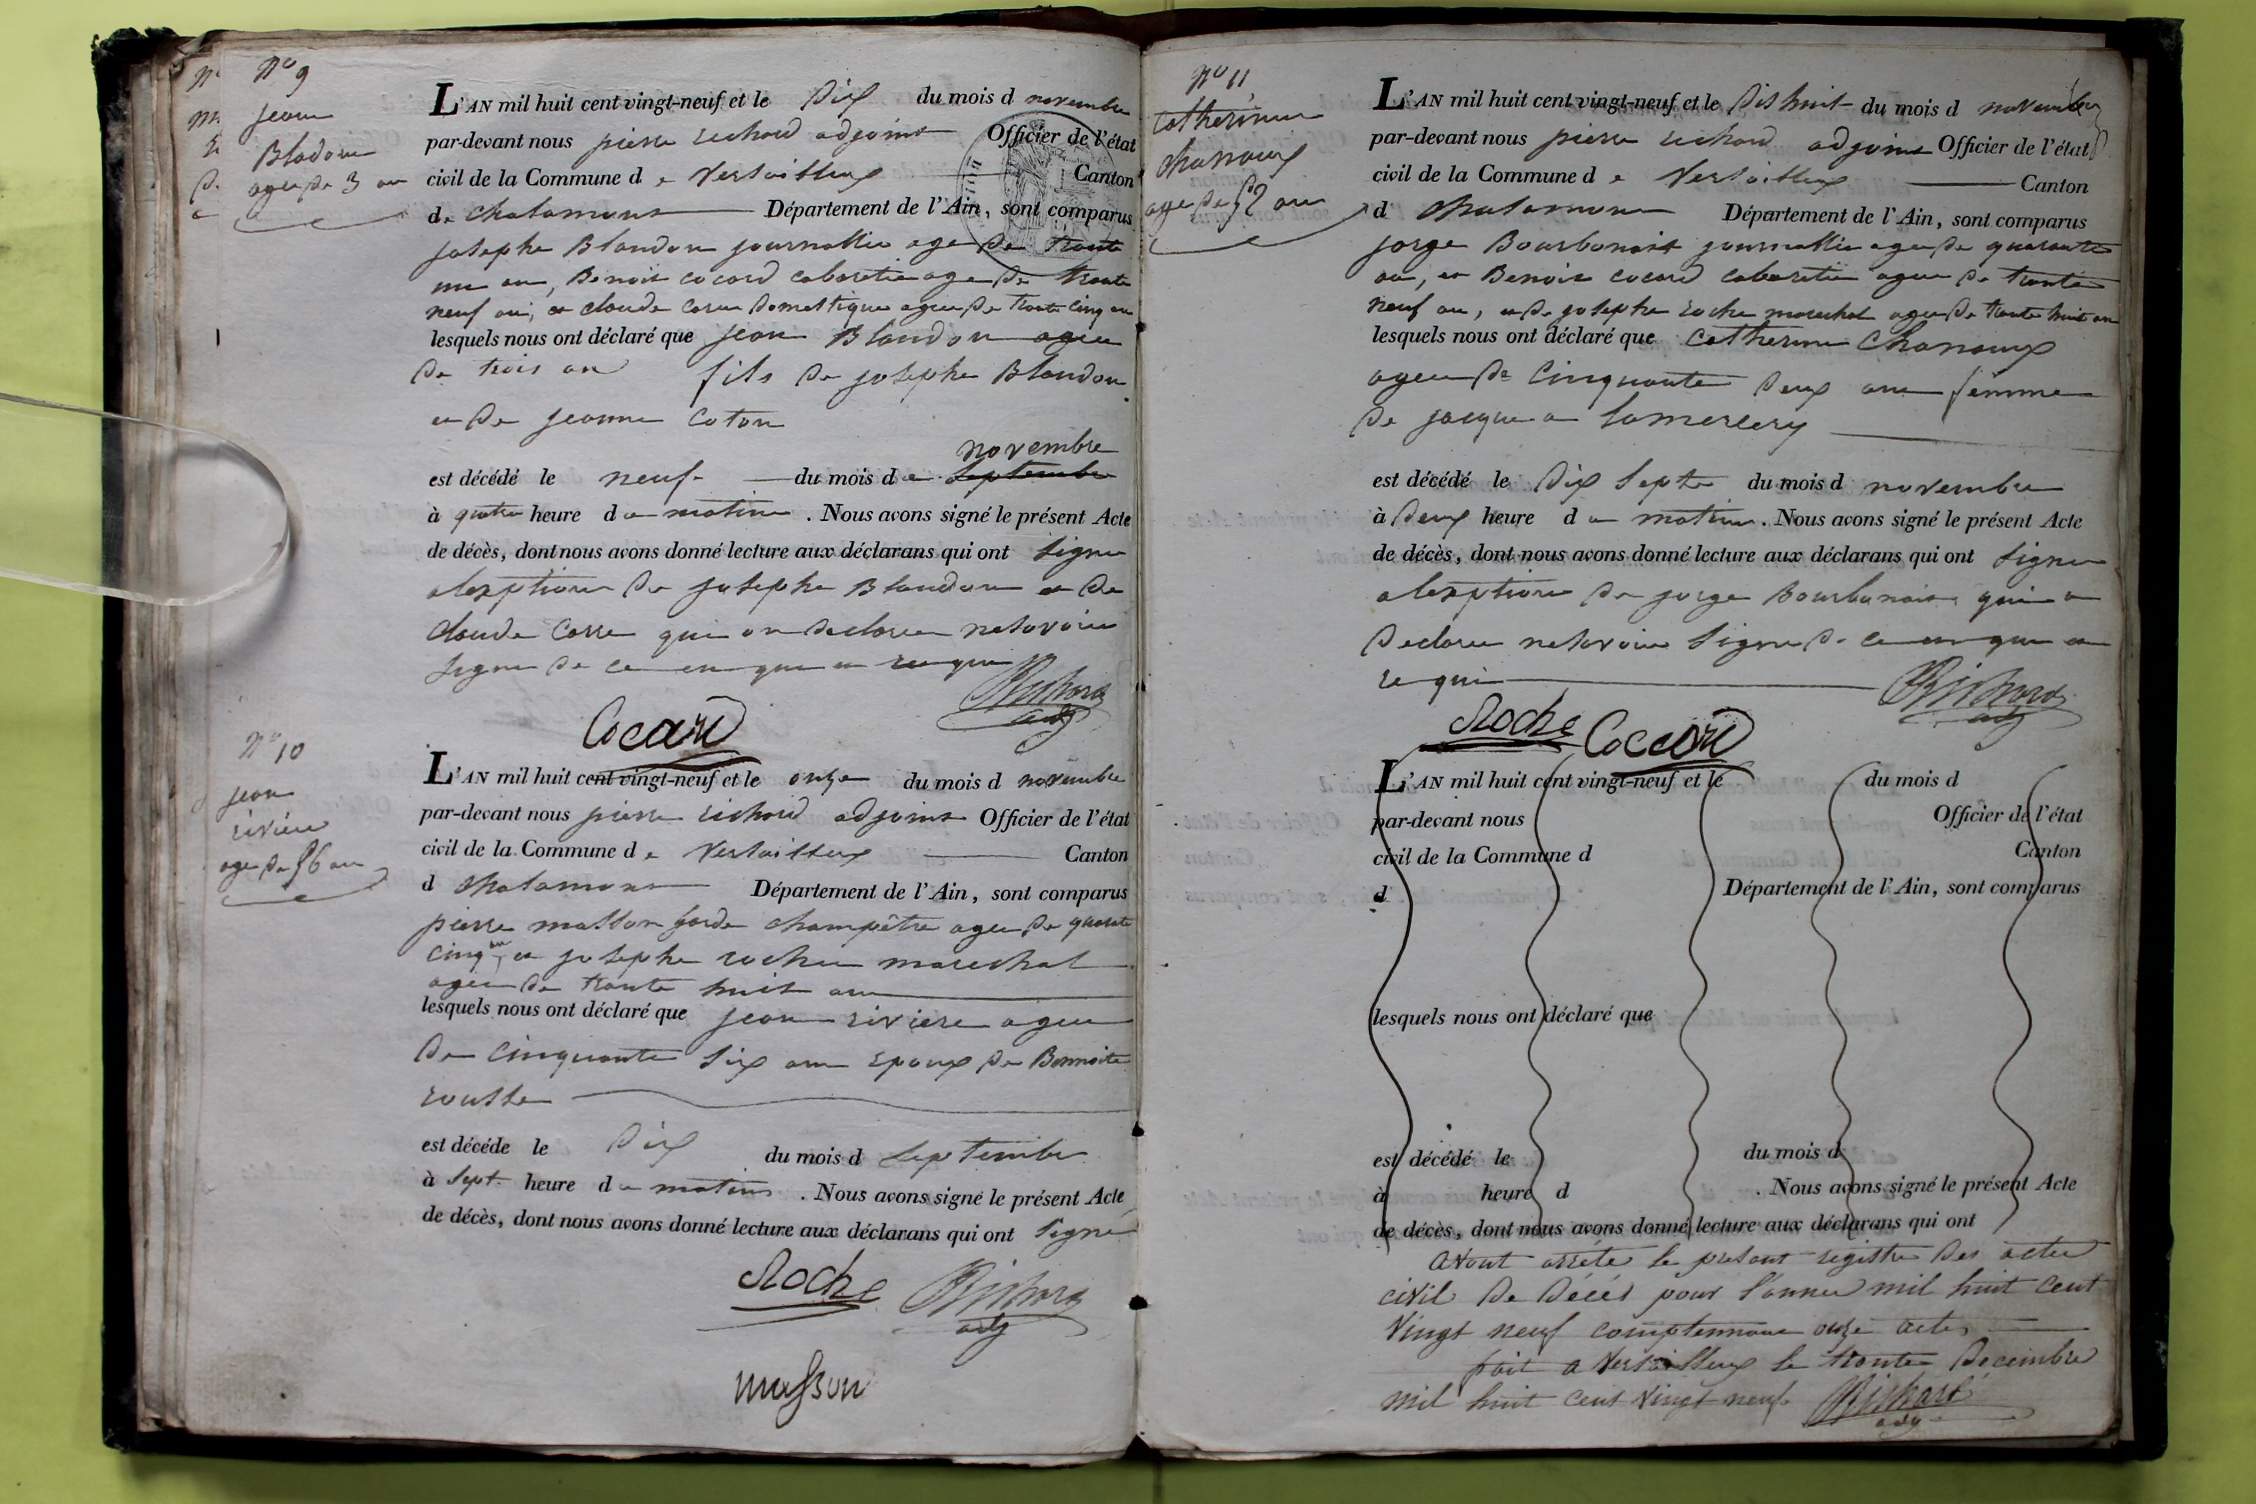 N° 9
jean
Blodon
agee de 3 an
L'AN mil huit cent vingt-neuf et le Dix du mois d novembre
par-devant nous pierre richard adjoint Officier de l'état
civil de la Commune d e Versailleux Canton
de chalamont Département de l'Ain, sont comparus
josephe Blondon journallie age de trante
un an, Benoit cocard cabaretie age de trante
neuf an, et claude corre domestique agee de trante cinq an
lesquels nous ont déclaré que jean Blondon agee
de trois an fils de josephe Blondon
et de jeanne Coton
novembre
est décédé le neuf du mois d e septembre
à quatre heure d u matin . Nous avons signé le présent Acte
de décès, dont nous avons donné lecture aux déclarans qui ont signe
alexption de josephe Blondon et de
claude Corre qui on declaree nesavoire
signe de ce en qui a requi
Richard
adj
Cocard
N° 10
jean
riviere
age de 56 an
L'AN mil huit cent vingt-neuf et le onze du mois d novembre
par-devant nous pierre richard adjoint Officier de l'état
civil de la Commune d e Versailleux Canton
d chalamont Département de l'Ain, sont comparus
pierre masson garde champêtre agee de quarante
cinq an, et josephe roche marechal
agee de trante huit an
lesquels nous ont déclaré que jean riviere agee
de cinquante six an epoux de Bennoite
rousse
est décéde le Dix du mois d septembre
à sept heure d u matin . Nous avons signé le présent Acte
de décès, dont nous avons donné lecture aux déclarans qui ont signé
Roche Richard
adj
masson
N° 11
Catherinne
chanoux
agee de 52 an
L'AN mil huit cent vingt-neuf et le Dishuit du mois d novembre
par-devant nous pierre richard adjoint Officier de l'état
civil de la Commune d e Versailleux Canton
d chalamont Département de l'Ain, sont comparus
jorge Bourbonait journallie agee de quarante
an, et Benoit cocard cabaretie agee de trante
neuf an, et de josephe roche marechal agee de trante huit an
lesquels nous ont déclaré que Catherinne Chanoux
agee de Cinquante deux an femme
de jacque a
est décédé le Dix septe du mois d novembre
à deux heure d u matin . Nous avons signé le présent Acte
de décès, dont nous avons donné lecture aux déclarans qui ont signe
alexption de jorge Bourbonait qui a
declaree nesavoire signe de ce en qui a
requi
Richard
adj
Roche Cocard
L'AN mil huit cent vingt-neuf et le du mois d
par-devant nous Officier de l'état
civil de la Commune d Canton
d Département de l'Ain, sont comparus
lesquels nous ont déclaré que
est décédé le du mois d
à heure d . Nous avons signé le présent Acte
de décès, dont nous avons donné lecture aux déclarans qui ont
avont arrété le presant registre des actes
civil de Décés pour l'annee mil huit cent
vingt neuf comptennant onze actes
fait a Versailleux le trante Decembre
mil huit cent vingt neuf Richard
adj